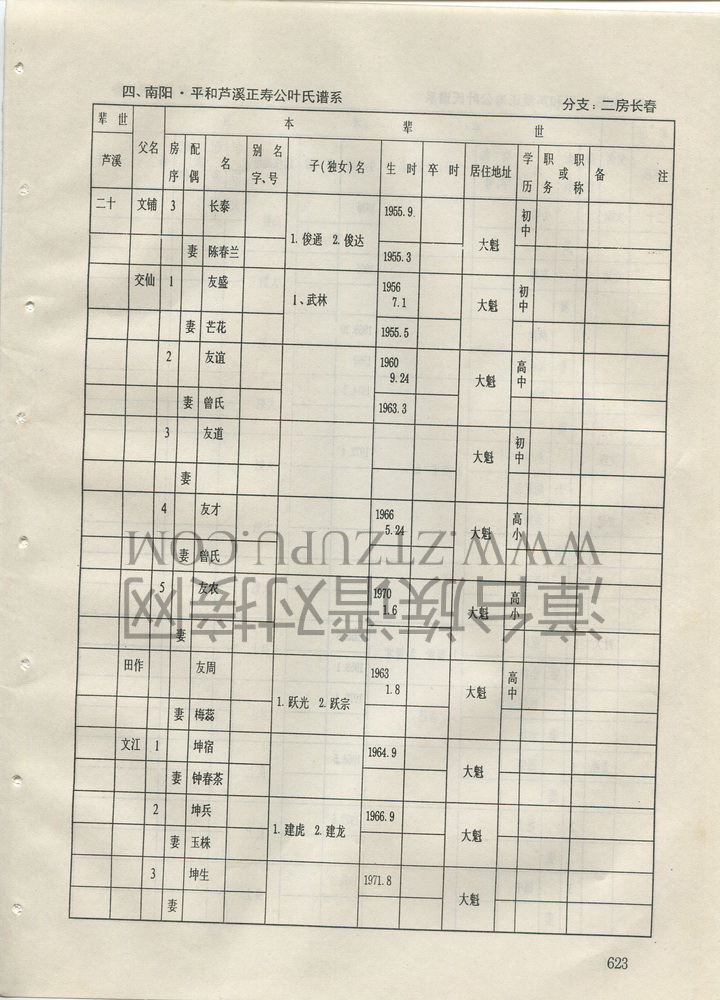 四、南阳·平和芦溪正寿公叶氏谱系 分支：二房长春
辈世 父名 本辈世
芦溪 房序 配偶 名 别名字、号 子(独女)名 生时 卒时 居住地址 学历 职务或职称 备注
二十 文铺 3 长泰 1.俊通 2.俊达 1955.9. 大魁 初中
妻 陈春兰 1955.3
交仙 1 友盛 1、武林 1956 7.1 大魁 初中
妻 芒花 1955.5
2 友谊 1960 9.24 大魁 高中
妻 曾氏 1963.3
3 友道 大魁 初中
妻
4 友才 1966 5.24 大魁 高小
妻 曾氏
5 友农 1970 1.6 大魁 高小
妻
田作 友周 1.跃光 2.跃宗 1963 1.8 大魁 高中
妻 梅蕊
文江 1 坤宿 1964.9 大魁
妻 钟春茶
2 坤兵 1.建虎 2.建龙 1966.9 大魁
妻 玉株
3 坤生 1971.8 大魁
妻
623
WWW.ZTZUPU.COM
漳台族谱对接网